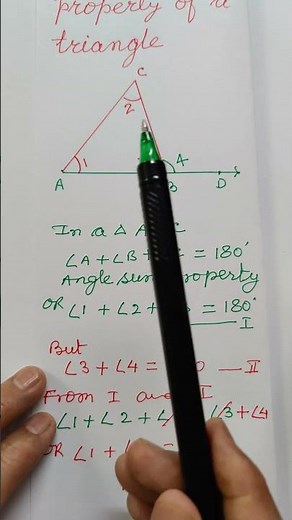 property of a
triangle
C
2
1
4
A
B
D
In a △ A C
∠A + ∠B + = 180°
Angle sum property
OR ∠1 + ∠2 + = 180°
I
But
∠3 + ∠4 = 0 — II
From I and I
∠1 + ∠2 + ∠ ∠3 + ∠4
OR ∠1 + ∠ =